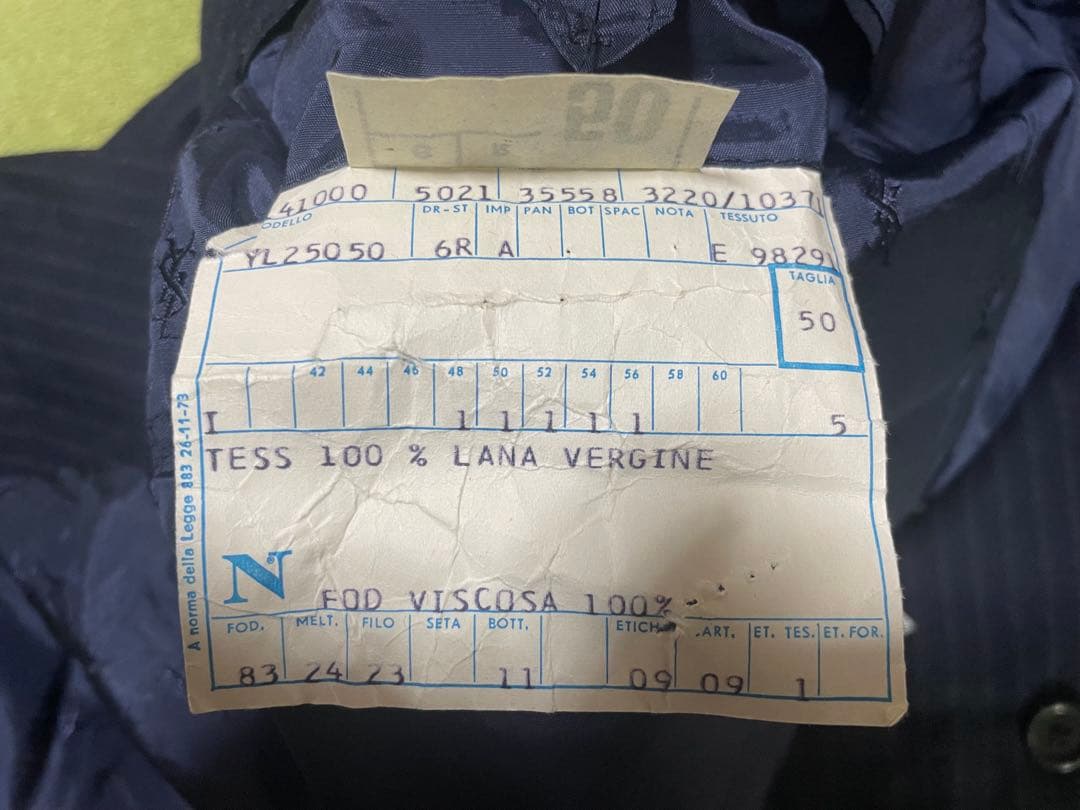 50
41000 5021 35558 3220/10371
ODELLO DR-ST IMP PAN BOT SPAC NOTA TESSUTO
YL25050 6R A . . E 98291
TAGLIA
50
42 44 46 48 50 52 54 56 58 60
I 1 1 1 1 1 5
TESS 100 % LANA VERGINE
N
FOD VISCOSA 100%
FOD. MELT. FILO SETA BOTT. ETICH. .ART. ET. TES. ET. FOR.
83 24 23 11 09 09 1
A norma della Legge 883 26-11-73